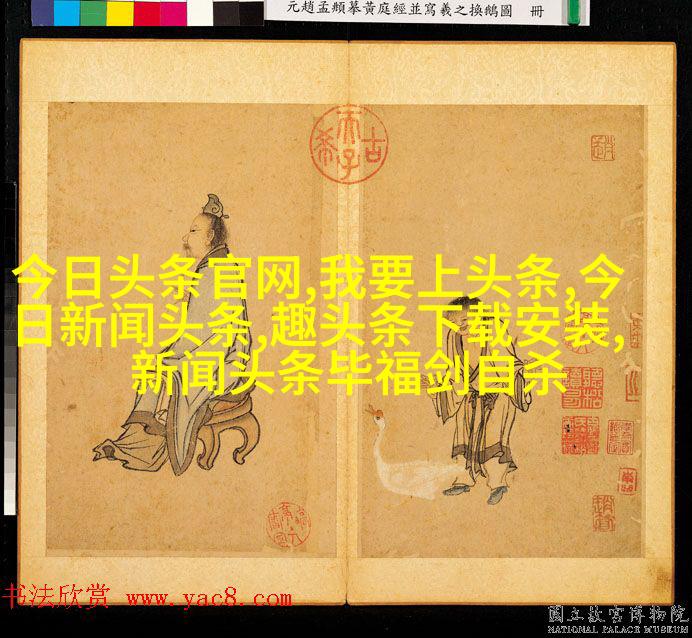 元趙孟頫摹黃庭經並寫羲之換鵝圖 冊
古希天子
今日头条官网,我要上头条,今
日新闻头条,趣头条下载安装,
新闻头条毕福剑自杀
书法欣赏 www.yac8.com
國立故宮博物院
NATIONAL PALACE MUSEUM